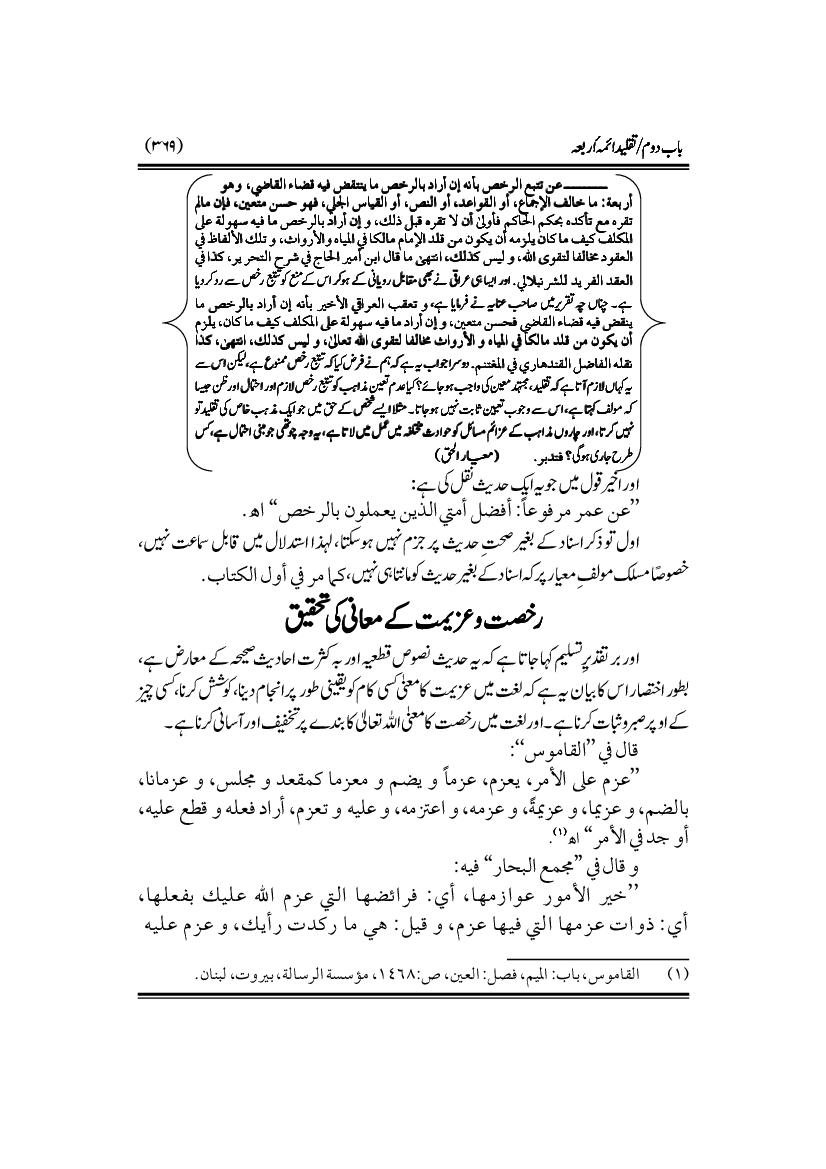 باب دوم/تقلید ائمہ اربعہ (۳۶۹)
ــــــــــ عن تتبع الرخص بأنه إن أراد بالرخص ما ينتقض فيه قضاء القاضي، وهو
أربعة: ما خالف الإجماع، أو القواعد، أو النص، أو القياس الجلي، فهو حسن متعين، فإن مالم
تقره مع تأكده بحكم الحاكم فأولىٰ أن لا تقره قبل ذلك، و إن أراد بالرخص ما فيه سهولة على
المكلف كيف ما كان يلزمه أن يكون من قلد الإمام مالكا في المياه والأرواث، و تلك الألفاظ في
العقود مخالفا لتقوى الله، و ليس كذلك، انتهىٰ ما قال ابن أمير الحاج في شرح التحرير، كذا في
العقد الفريد للشرنبلالي. اور ایسا ہی عراقی نے بھی مقابل رویانی کے ہوکر اس کے منع کو تتبع رخص سے رد کر دیا
ہے۔ چناں چہ تقریر میں صاحب عنایہ نے فرمایا ہے، و تعقب العراقي الأخير بأنه إن أراد بالرخص ما
ينقض فيه قضاء القاضي فحسن متعين، و إن أراد ما فيه سهولة على المكلف كيف ما كان، يلزم
أن يكون من قلد مالكا في المياه و الأرواث مخالفا لتقوى الله تعالىٰ، و ليس كذلك، انتهىٰ، كذا
نقله الفاضل القندهاري في المغتنم۔ دوسرا جواب یہ ہے کہ ہم نے فرض کیا کہ تتبع رخص ممنوع ہے، لیکن اس سے
یہ کہاں لازم آتا ہے کہ تقلید، مجتہد معین کی واجب ہو جائے؟ کیا عدم تعین مذاہب کو تتبع رخص لازم اور احتمال اور ظن جیسا
کہ مولف کہتا ہے، اس سے وجوب تعیین ثابت نہیں ہو جاتا۔ مثلا ایسے شخص کے حق میں جو ایک مذہب خاص کی تقلید تو
نہیں کرتا، اور چاروں مذاہب کے عزائم مسائل کو حوادث مختلفہ میں عمل میں لاتا ہے، یہ وجہ چوتھی جو مبنی احتمال ہے، کس
طرح جاری ہوگی؟ فتدبر. (معیار الحق)
اور اخیر قول میں جو یہ ایک حدیث نقل کی ہے:
”عن عمر مرفوعاً: أفضل أمتي الذين يعملون بالرخص“ اھ.
اول تو ذکر اسناد کے بغیر صحتِ حدیث پر جزم نہیں ہو سکتا، لہذا استدلال میں قابل سماعت نہیں،
خصوصًا مسلک مولفِ معیار پر کہ اسناد کے بغیر حدیث کو مانتا ہی نہیں، كما مر في أول الكتاب.
رخصت و عزیمت کے معانی کی تحقیق
اور بر تقدیرِ تسلیم کہا جاتا ہے کہ یہ حدیث نصوص قطعیہ اور بہ کثرت احادیث صحیحہ کے معارض ہے،
بطور اختصار اس کا بیان یہ ہے کہ لغت میں عزیمت کا معنیٰ کسی کام کو یقینی طور پر انجام دینا، کوشش کرنا، کسی چیز
کے اوپر صبر و ثبات کرنا ہے۔ اور لغت میں رخصت کا معنیٰ اللہ تعالیٰ کا بندے پر تخفیف اور آسانی کرنا ہے۔
قال في ”القاموس“:
”عزم على الأمر، يعزم، عزماً و يضم و معزما كمقعد و مجلس، و عزمانا،
بالضم، و عزيما، و عزيمةً، و عزمه، و اعتزمه، و عليه و تعزم، أراد فعله و قطع عليه،
أو جد في الأمر“ اھ(۱).
و قال في ”مجمع البحار“ فيه:
”خير الأمور عوازمها، أي: فرائضها التي عزم الله عليك بفعلها،
أي: ذوات عزمها التي فيها عزم، و قيل: هي ما ركدت رأيك، و عزم عليه
(۱) القاموس، باب: الميم، فصل: العين، ص:١٤٦٨، مؤسسة الرسالة، بيروت، لبنان.